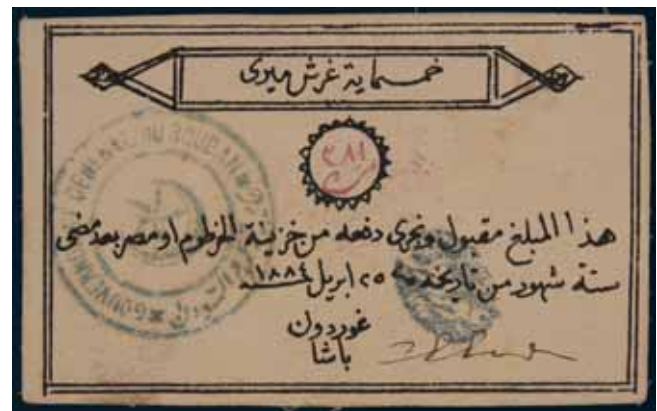 خمسماية غرش ميرى
٢٨١
هذا المبلغ مقبول ويجرى دفعه من خزينة الخرطوم او مصر بعد مضى
ستة شهور من تاريخه ٢٥ ابريل سنة ١٨٨٤
غوردون
باشا
GENERAL DU SOUDAN